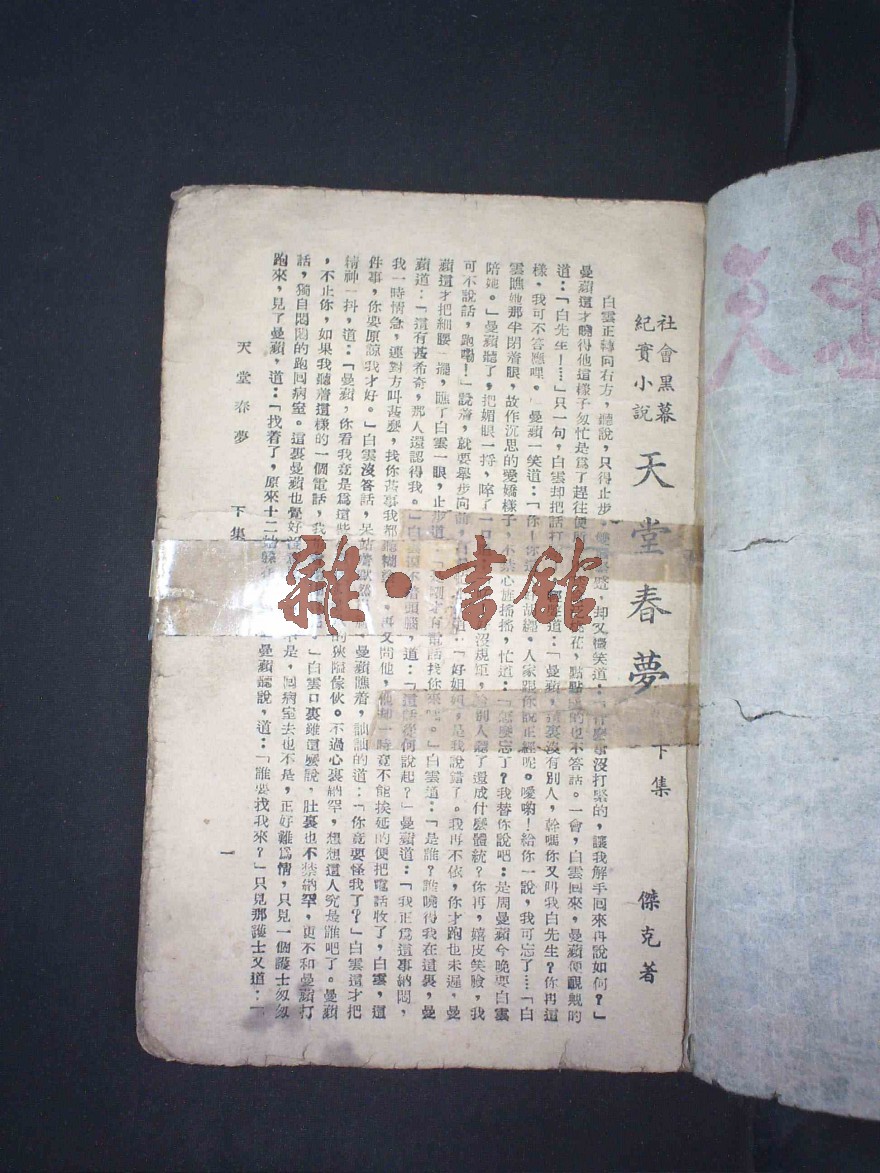 社會黑幕
紀實小說
天堂春夢
下集
傑克著
白雲正轉向右方，聽說，只得止步。
却又優笑道：「什麼事沒打緊的，讓我解手回來再說如何？」
曼蘋這才曉得他這樣子匆忙是爲了趕往便
花，點點
的也不答話。一會，白雲回來，曼蘋便靦覥的
道：「白先生！…」只一句，白雲却把話打
道：「曼蘋，這裏沒有別人，幹嗎你又叫我白先生？你再這
樣，我可不答應哩。」曼蘋一笑道：「你！你這
胡纏。人家跟你說正經呢。噯喲！給你一說，我可忘了…「白
雲瞧她那半閉着眼，故作沉思的愛嬌樣子，不禁心旌搖搖，忙道：「怎麼忘了？我替你說吧：是周曼蘋今晚要白雲
陪她。」曼蘋聽了，把媚眼一捋，啐了一口
沒規矩，給別人聽了還成什麼體統？你再，嬉皮笑臉，我
可不說話，跑嘞！」說着，就要舉步向前，
道：「好姐姐，是我說錯了。我再不依，你才跑也未遲，曼
蘋這才把細腰一擺，瞧了白雲一眼，止步道：「
剛才有電話找你來呢。」白雲道：「是誰？誰曉得我在這裏，曼
蘋道：「這有甚希奇，那人還認得我。」白雲摸不着頭腦，道：「這話從何說起？」曼蘋道：「我正爲這事納悶，
我一時情急，連對方叫甚麼，找你甚事我都聽糊
再又問他，他却一時竟不能挨延的便把電話收了，白雲，這
件事，你要原諒我才好。」白雲沒答話，呆站着默然
曼蘋瞧着，訕訕的道：「你竟要怪我了？」白雲這才把
精神一抖，道：「曼蘋，你看我竟是爲這些
的狹隘傢伙。不過心裏納罕，想想這人究是誰吧了。曼蘋
，不止你，如果我聽着這樣的一個電話，我
」白雲口裏雖這麼說，肚裏也不禁納罕，更不和曼蘋打
話，獨自悶悶的跑回病室。這裏曼蘋也覺好沒
不是，回病室去也不是，正好難爲情，只見一個護士匆匆
跑來，見了曼蘋，道：「找着了，原來十二姑躲在
曼蘋聽說，道：「誰要找我來？」只見那護士又道：「
天堂春夢
下集
一
天堂
雜·書館